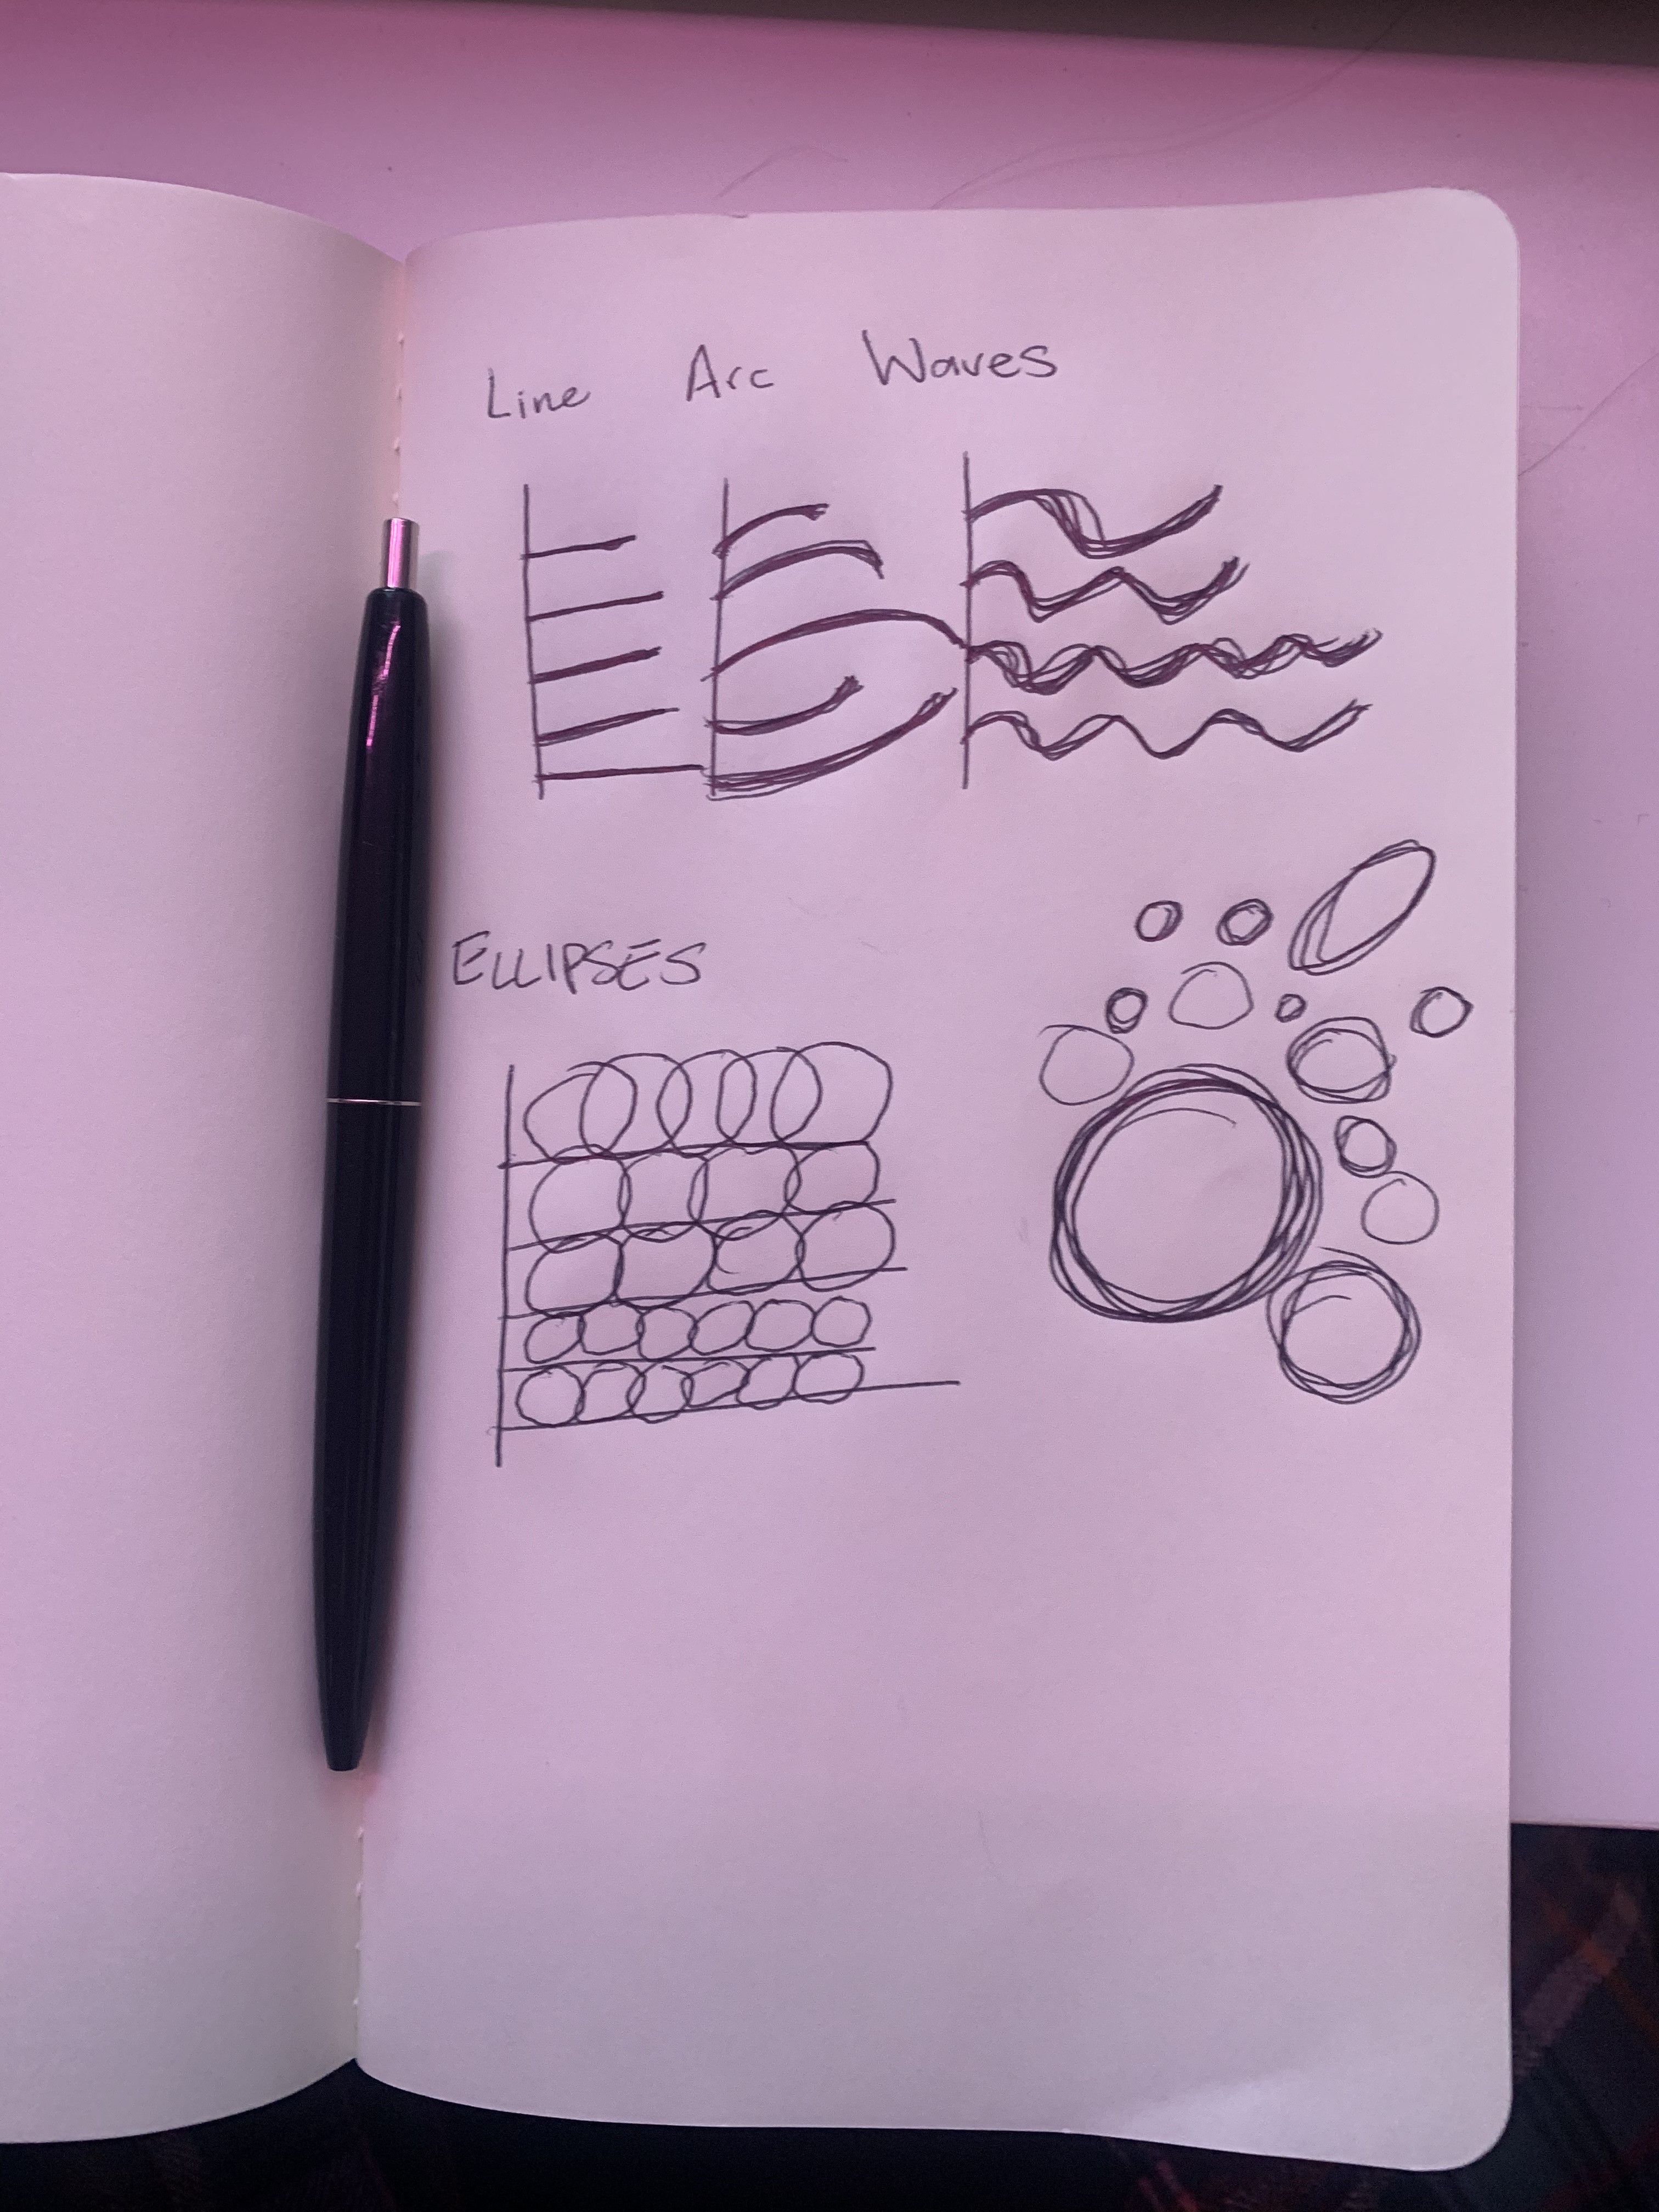 Line Arc Waves
ELLIPSES